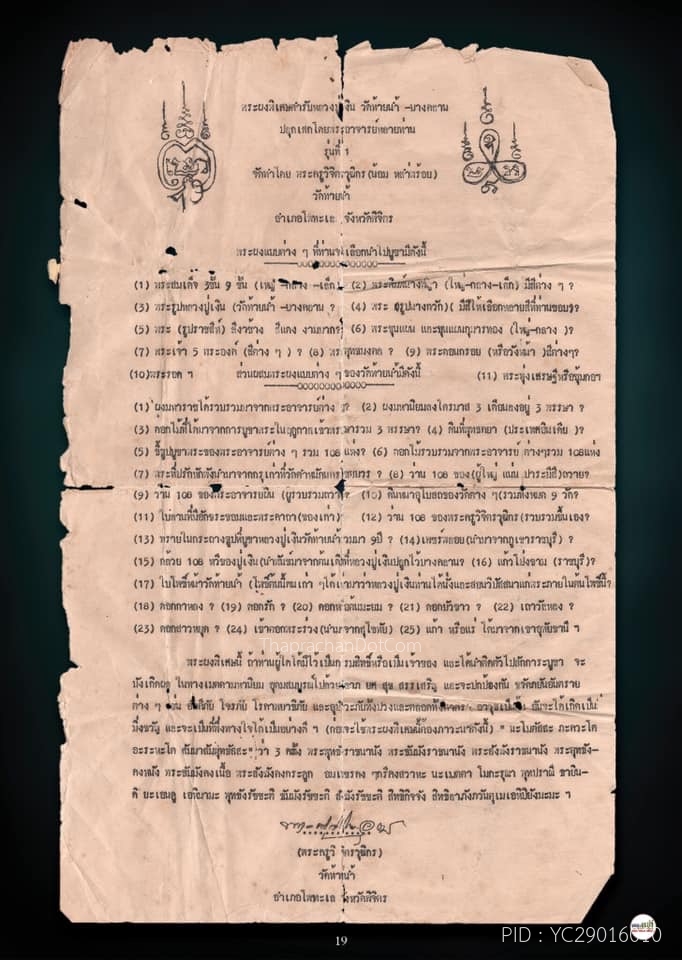 พระผงพิเศษตำรับหลวงปู่เงิน วัดท้ายน้ำ -บางคลาน
ปลุกเสกโดยพระอาจารย์หลายท่าน
รุ่นที่ 1
จัดทำโดย พระครูวิจิตรวุฒิกร
วัดท้ายน้ำ
อำเภอโพทะเล จังหวัดพิจิตร
พระผงแบบต่าง ๆ ที่ท่านจะเลือกนำไปบูชามีดังนี้
(1) พระสมเด็จ 3ชั้น 9 ชั้น (ใหญ่ -กลาง -เล็ก) (2) (ใหญ่-กลาง-เล็ก) มีสีต่าง ๆ ?
(3) พระรูปหลวงปู่เงิน (วัดท้ายน้ำ -บางคลาน ? (4) พระ ( มีสีให้เลือกหลายสีที่ท่านชอบ)?
(5) พระ (รูปราชสีห์) สีงาช้าง สีแดง งามมาก? (6) พระขุนแผน และขุนแผนกุมารทอง (ใหญ่-กลาง )?
(7) พระเจ้า 5 พระองค์ (สีต่าง ๆ ) ? (8) (9) พระคอนกรอย (หรือวังหน้า )สีต่างๆ?
(10)พระรอด ฯ ส่วนผสมพระผงแบบต่าง ๆ ของวัดท้ายน้ำมีดังนี้ (11)
(1) ผงมหาราชได้รวบรวมมาจากพระอาจารย์ต่าง ๆ ? (2) ผงมหานิยมลงไตรมาส 3 เดือนลงอยู่ 3 พรรษา ?
(3) ดอกไม้ที่ได้มาจากการบูชาพระในฤดูกาลเข้าพรรษารวม 3 พรรษา? (4) ดินที่พุทธคยา (ประเทศอินเดีย )?
(5) ขี้ธูปบูชาพระของพระอาจารย์ต่าง ๆ รวม 108 แห่ง? (6) ดอกไม้รวบรวมจากพระอาจารย์ ต่างๆรวม 108แห่ง
(7) พระที่ปรักหักพังนำมาจากกรุเก่าที่วัด ? (8) ว่าน 108 ของ(ผู้ใหญ่ แม่น ปาระมีสี)ถวาย?
(9) ว่าน 108 ของพระอาจารย์ (ผู้รวบรวมถวาย)? (10) ดินหน้าอุโบสถของวัดต่าง ๆ(รวมทั้งหมด 9 วัด?
(11) ใบลานที่มีอักขระขอมและพระคาถา(ของเก่า) (12) ว่าน 108 ของพระครูวิจิตรวุฒิกร(รวบรวมขึ้นเอง?
(13) ทรายในกระถางธูปที่บูชาหลวงปู่เงินวัดท้ายน้ำรวมมา 9ปี ? (14) (นำมาจากภูเขาราชบุรี) ?
(15) กล้วย 108 หวีของปู่เงิน(นำพันธ์มาจากต้นเดิมที่หลวงปู่เงินปลูกไว้บางคลาน? (16) แก้วโป่งขาม (ราชบุรี)?
(17) ใบโพธิ์หน้าวัดท้ายน้ำ (โพธิ์ต้นนี้คนเก่า ๆได้เล่ามาว่าหลวงปู่เงินท่านได้นั่งและสอนวิปัสสนาแก่พระภายในต้นโพธิ์นี้?
(18) ดอกกาหลง ? (19) ดอกรัก ? (20) (21) ดอกบัวขาว ? (22) เถาวัลหลง ?
(23) ดอกสาวหยุด ? (24) (นำมาจากสุโขทัย) (25) แก้ว หรือแร่ ได้มาจากเขาอุทัยธานี ฯ
พระผงพิเศษนี้ ถ้าท่านผู้ใดได้มีไว้เป็นกรรมสิทธิ์หรือเป็นเจ้าของ และได้นำติดตัวไปสักการะบูชา จะ
บังเกิดผล ในทางเมตตามหานิยม อุดมสมบูรณ์ไปด้วย ลาภ ยศ สุข สรรเสริญ และจะปกป้องกัน ขวัญภยันอันตราย
ต่าง ๆ เช่น อัคคีภัย โจรภัย โรคาพยาธิภัย และอุปัทวะภัยทั้งปวงและตลอดทั้ง จะได้เกิดเป็น
มิ่งขวัญ และจะเป็นที่พึ่งทางใจได้เป็นอย่างดี ฯ (ก่อนจะใช้พระผงพิเศษนี้ต้องภาวะนาดังนี้) " นะโมตัสสะ ภะคะวะโต
อะระหะโต สัมมาสัมพุทธัสสะ" ว่า 3 ครั้ง พระพุทธังราชนานัง พระธัมมังราชนานัง พระสังฆังราชนานัง พระพุทธัง-
คงหนัง พระธัมมังคงเนื้อ พระสังฆังคงกระดูก ตรีคงสวาหะ นะเมตตา โมกะรุณา พุทปราณี ธายิน-
ดี ยะเอนดู เอหิมามะ พุทธังรัขะตี ธัมมังรัขะตี สังฆังรัขะตี สิทธิกิจจัง สิทธิลาภังภวันตุเมเอหิปิยังนะมะ ฯ
(พระครูวิจิตรวุฒิกร)
วัดท้ายน้ำ
อำเภอโพทะเล จังหวัดพิจิตร
ThaprachanDotCom
19
PID : YC29016010